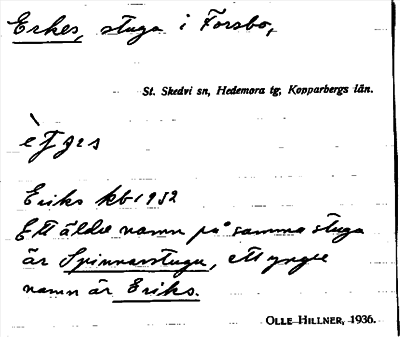 Erkes, stuga i Forsbo,
St. Skedvi sn, Hedemora tg, Kopparbergs län.
Eriks kb 1932
Ett äldre namn på samma stuga
är Spinnarstugu, ett yngre
namn är Eriks.
OLLE HILLNER, 1936.